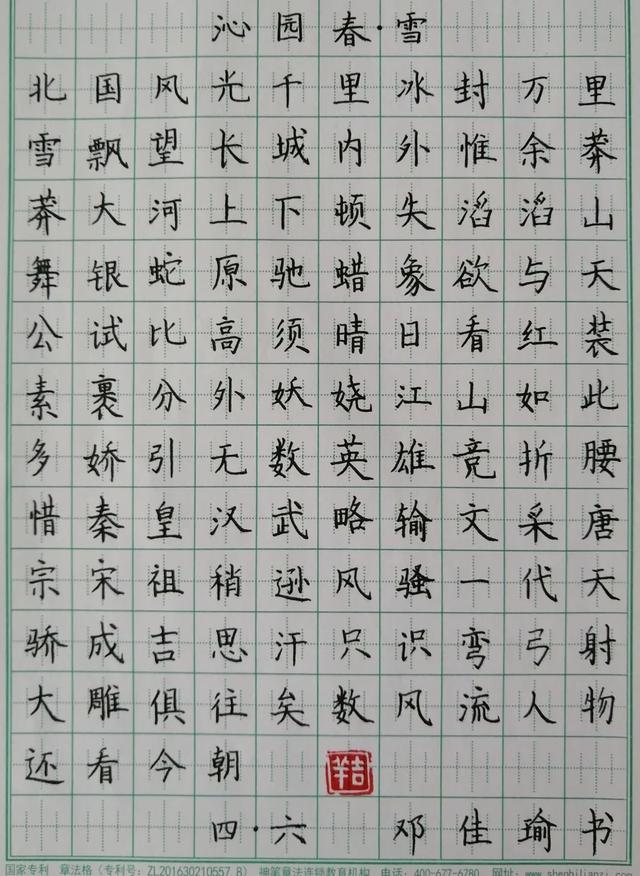 沁园春·雪
北国风光千里冰封万里
雪飘望长城内外惟余莽
莽大河上下顿失滔滔山
舞银蛇原驰蜡象欲与天
公试比高须晴日看红装
素裹分外妖娆江山如此
多娇引无数英雄竞折腰
惜秦皇汉武略输文采唐
宗宋祖稍逊风骚一代天
骄成吉思汗只识弯弓射
大雕俱往矣数风流人物
还看今朝
四·六 邓佳瑜书
国家专利 章法格（专利号：ZL201630210557.8） 神笔章法连锁教育机构 电话：400-677-6780 网址：www.shenbilianzi.com